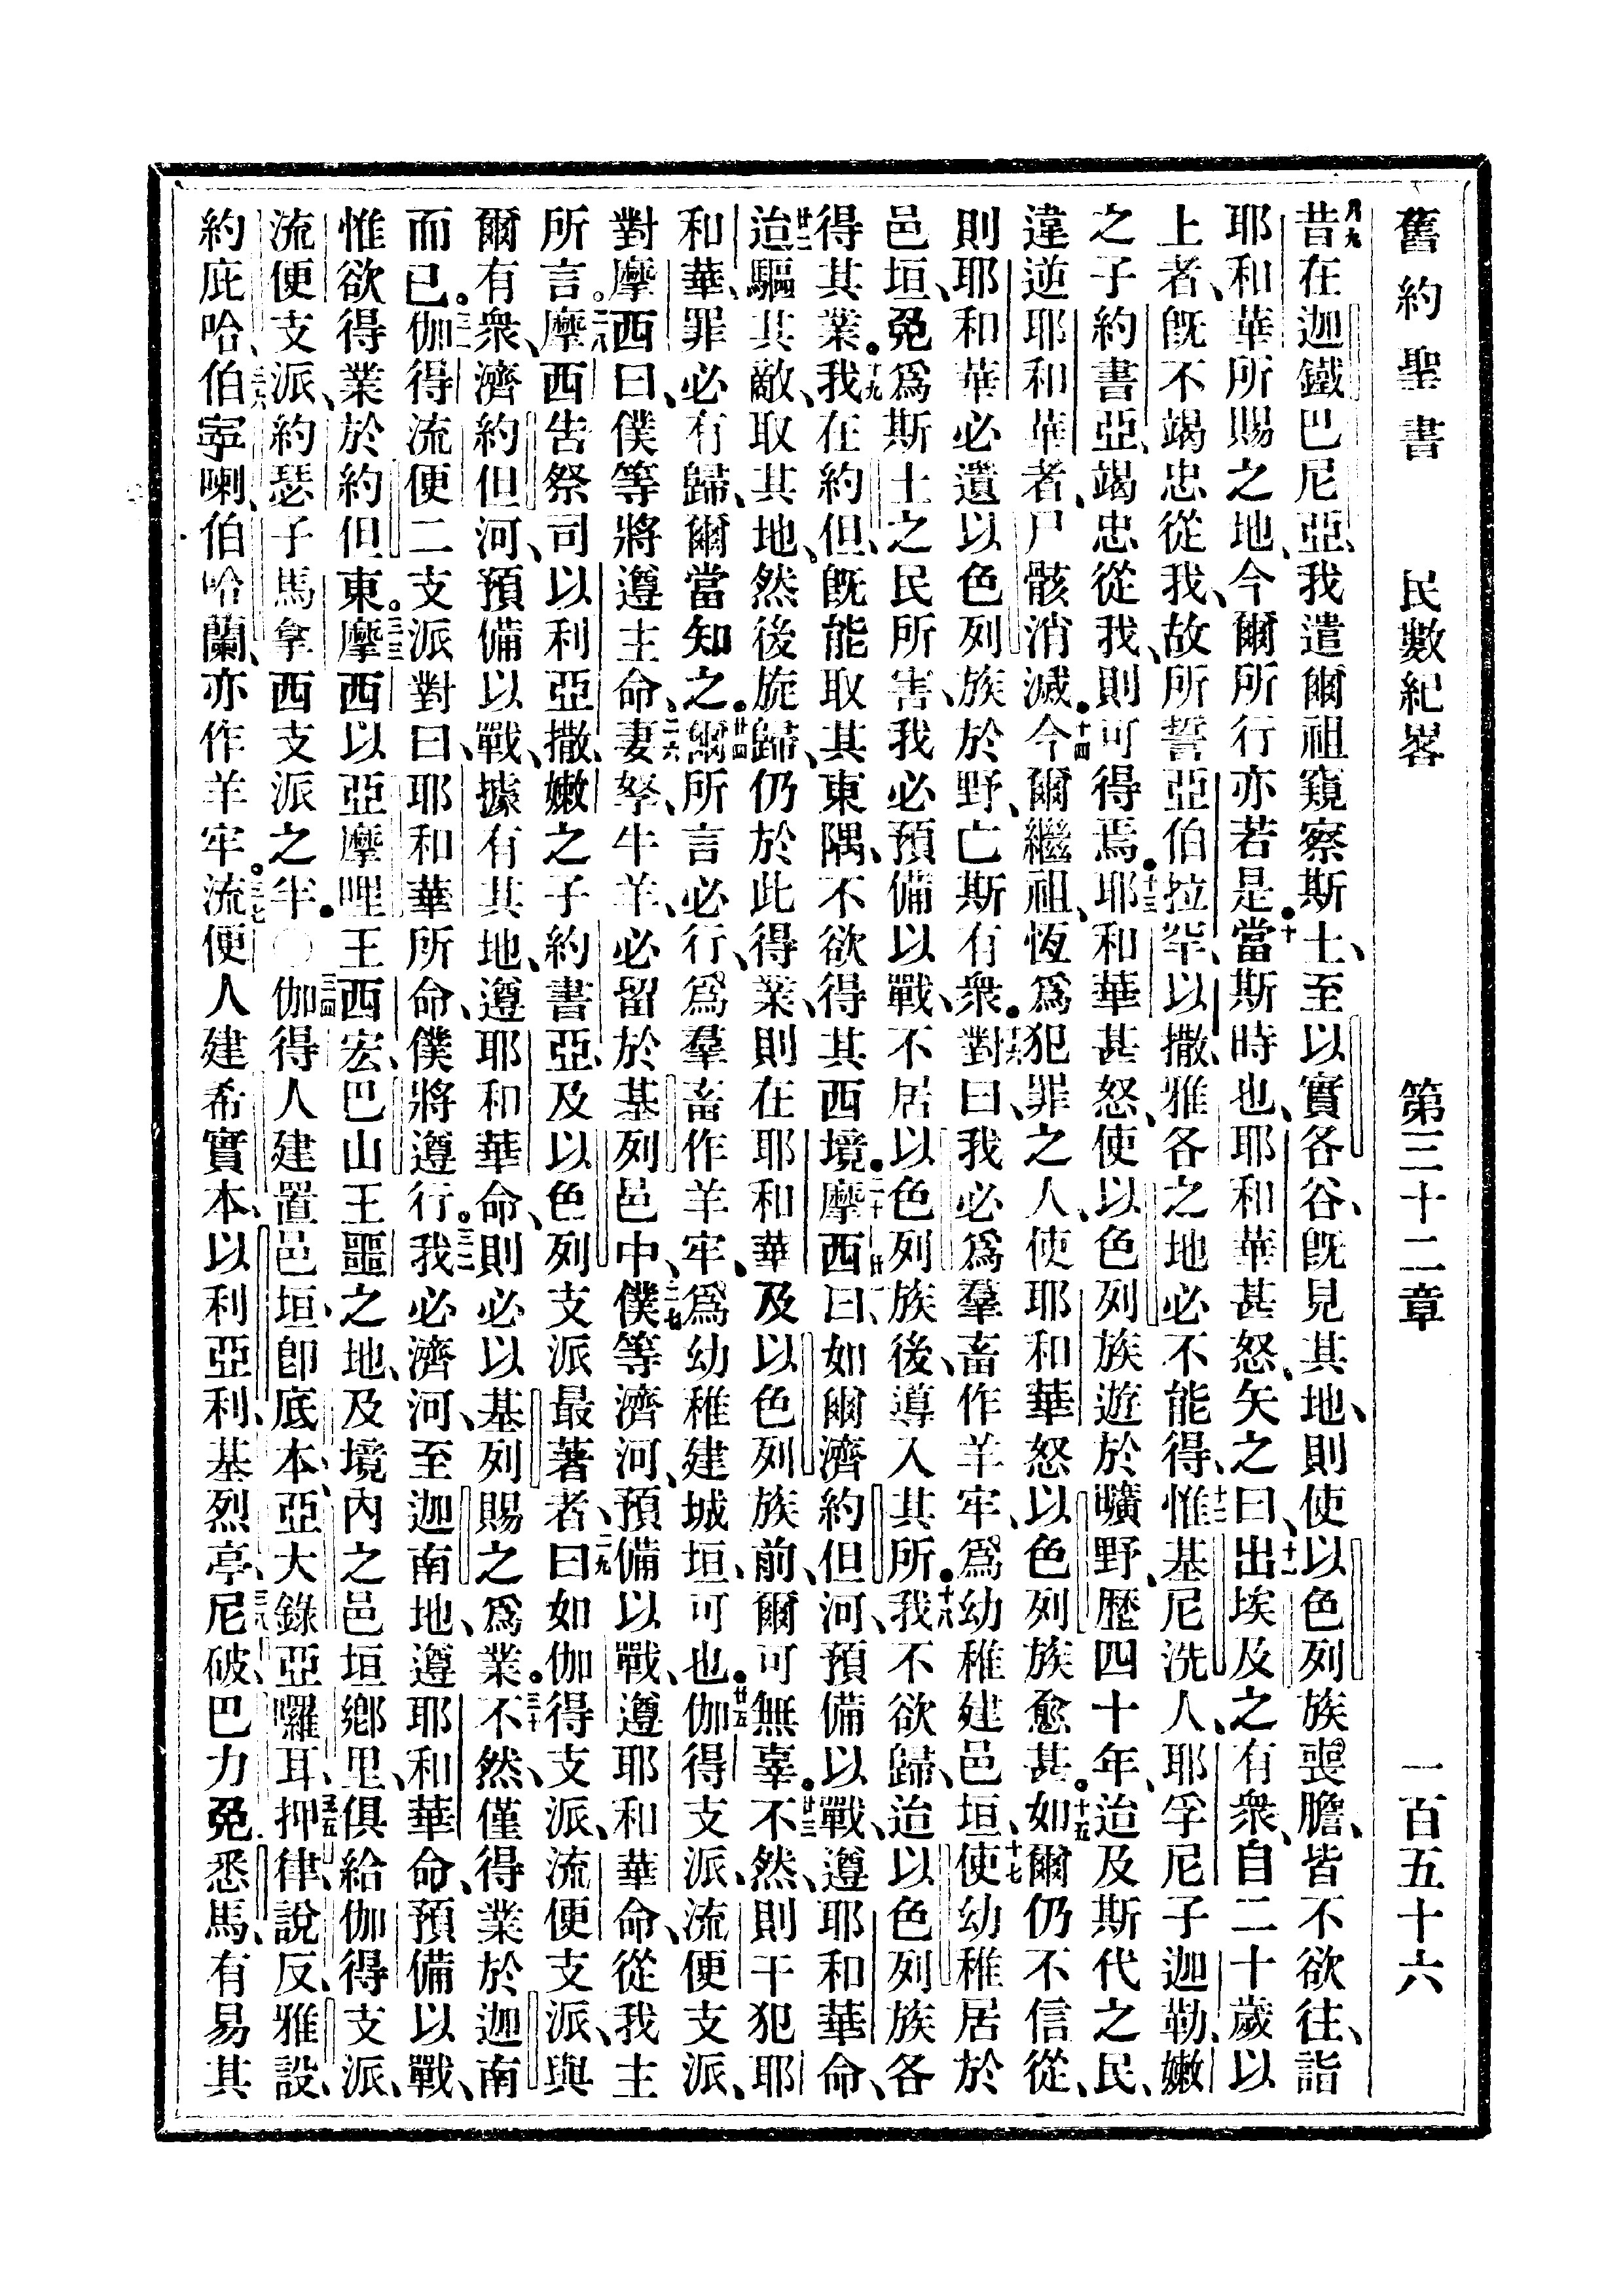 舊約聖書　民數紀畧　第三十二章　一百五十六
八九昔在迦鐵巴尼亞、我遣爾祖窺察斯土、至以實各谷、旣見其地、則使以色列族喪膽、皆不欲往、詣
耶和華所賜之地、今爾所行亦若是。十當斯時也、耶和華甚怒、矢之曰、十一出埃及之有衆、自二十歲以
上者、旣不竭忠從我、故所誓亞伯拉罕、以撒、雅各之地、必不能得、十二惟基尼洗人、耶孚尼子迦勒、嫩
之子約書亞、竭忠從我、則可得焉。十三耶和華甚怒、使以色列族遊於曠野、歷四十年、迨及斯代之民、
違逆耶和華者、尸骸消滅。十四今爾繼祖、恆爲犯罪之人、使耶和華怒以色列族愈甚。十五如爾仍不信從、
則耶和華必遺以色列族於野、亡斯有衆。十六對曰、我必爲羣畜作羊牢、爲幼稚建邑垣、十七使幼稚居於
邑垣、免爲斯土之民所害、我必預備以戰、不居以色列族後、導入其所。十八我不欲歸、迨以色列族各
得其業。十九我在約但、旣能取其東隅、不欲得其西境。二十摩西曰、如爾濟約但河、預備以戰、遵耶和華命、
廿二迨驅其敵、取其地、然後旋歸、仍於此得業、則在耶和華及以色列族前、爾可無辜。廿三不然、則干犯耶
和華、罪必有歸、爾當知之。廿四爾所言必行、爲羣畜作羊牢、爲幼稚建城垣、可也。廿五伽得支派、流便支派、
對摩西曰、僕等將遵主命、二六妻孥、牛羊、必留於基列邑中、二七僕等濟河、預備以戰、遵耶和華命、從我主
所言。二八摩西告祭司以利亞撒、嫩之子約書亞、及以色列支派最著者、二九曰如伽得支派、流便支派、與
爾有衆、濟約但河、預備以戰、據有其地、遵耶和華命、則必以基列賜之爲業。三十不然、僅得業於迦南
而已。三一伽得流便二支派對曰、耶和華所命、僕將遵行。三二我必濟河、至迦南地、遵耶和華命、預備以戰、
惟欲得業於約但東。三三摩西以亞摩哩王西宏、巴山王噩之地、及境內之邑垣鄉里、俱給伽得支派、
流便支派、約瑟子馬拿西支派之半。〇三四伽得人建置邑垣、卽底本、亞大錄、亞囉耳、三五抑律說反、雅設、
約庇哈、三六伯寧喇、伯哈蘭、亦作羊牢。三七流便人建希實本、以利亞利、基烈亭、三八尼破、巴力免、悉馬、有易其